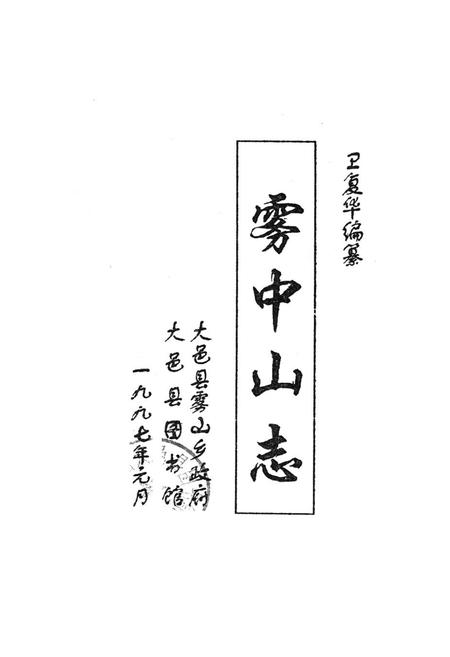 卫复华编纂
雾中山志
大邑县雾山乡政府
大邑县图书馆
一九九七年元月